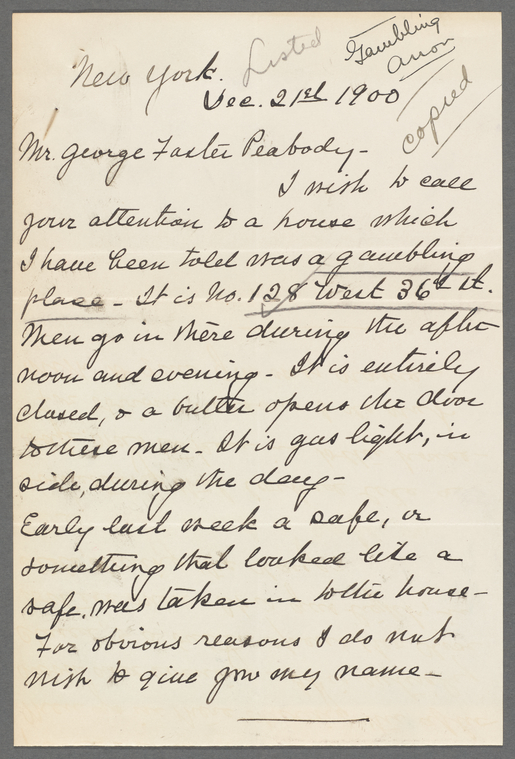 Listed
Gambling
Anon
copied
New York.
Dec. 21st 1900
Mr. George Foster Peabody -
I wish to call
your attention to a house which
I have been told was a gambling
place - It is No. 128 West 36th St.
Men go in there during the after
noon and evening - It is entirely
closed, & a butler opens the door
to these men - It is gas light, in
side, during the day -
Early last week a safe, or
something that looked like a
safe, was taken in to the house -
For obvious reasons I do not
wish to give you my name -